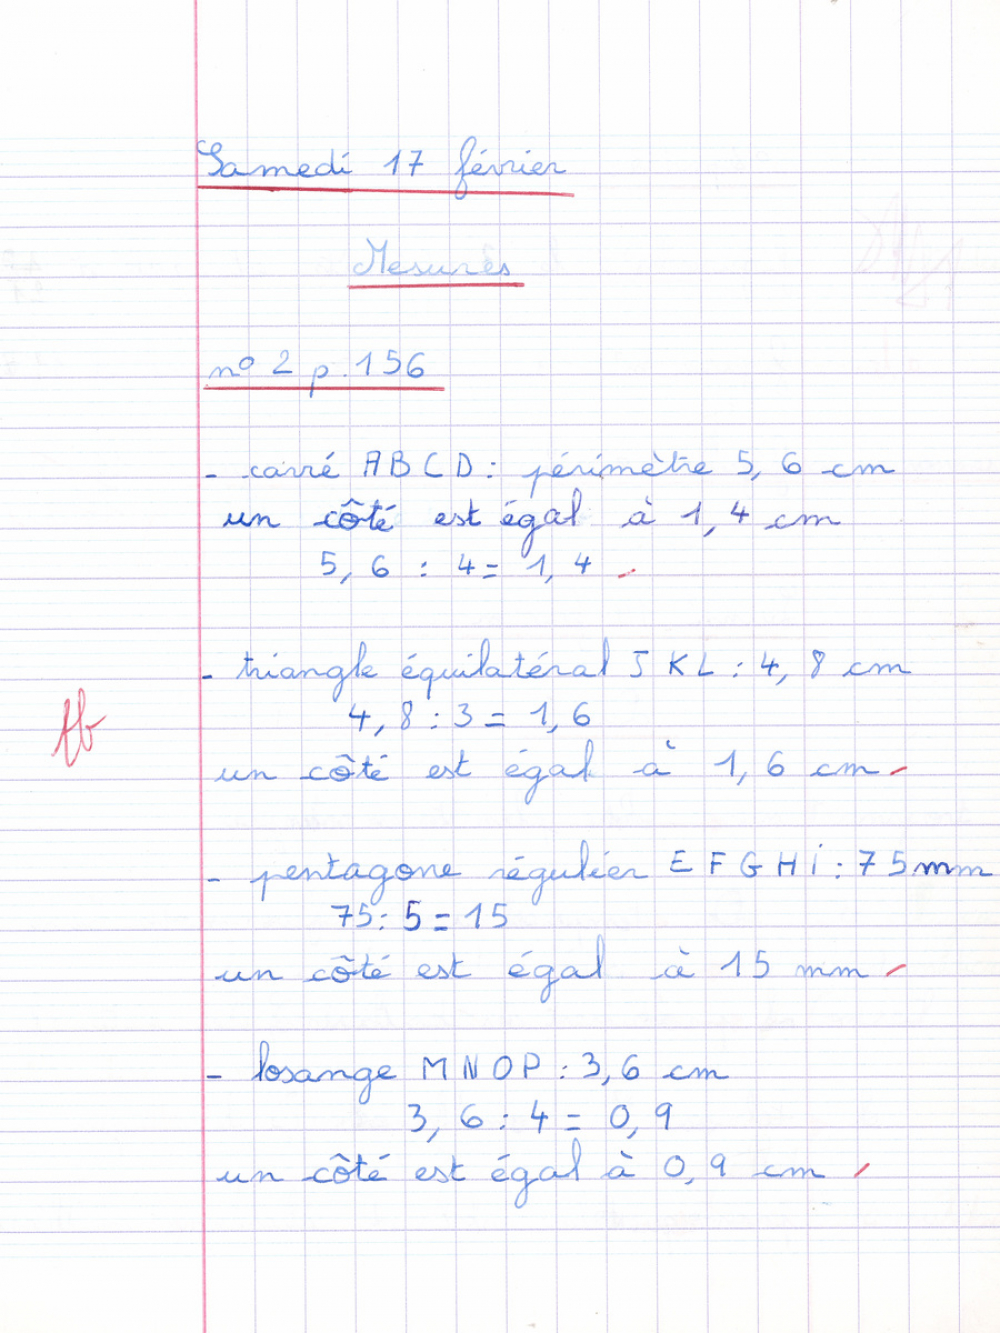 Samedi 17 février
Mesures
n° 2 p. 156
- carré ABCD : périmètre 5,6 cm
un côté est égal à 1,4 cm
5,6 : 4 = 1,4
- triangle équilatéral JKL : 4,8 cm
4,8 : 3 = 1,6
tb
un côté est égal à 1,6 cm
- pentagone régulier EFGHI : 75mm
75 : 5 = 15
un côté est égal à 15 mm
- losange MNOP : 3,6 cm
3,6 : 4 = 0,9
un côté est égal à 0,9 cm